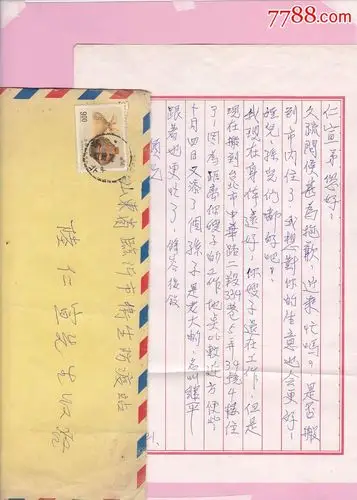 7788.com
仁宣弟您好：
久疏問侯甚為抱歉，近來忙嗎？是否搬
到市內住了，我想對你的生意也会更好，
姪兒，孫兒們都好吧？
我現在身体還好，你嫂子還在工作，但是
現在搬到台北市中華路二段334巷5弄34號4樓住
了，因為距離你嫂子的工作地点比較近方便些，
十月四日又添了個孫子是老大的，名叫繼平
跟着她更忙了，餘容後敘
900
山東省臨沂市衛生防疫站
陸仁宣先生收啟